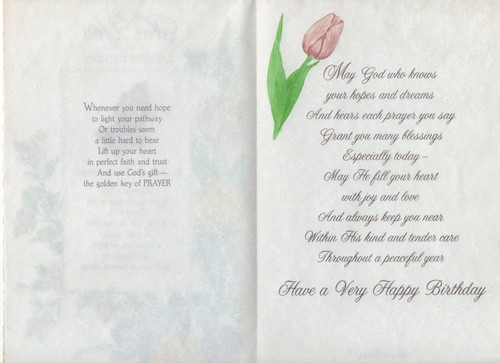 Whenever you need hope
to light your pathway
Or troubles seem
a little hard to bear
Lift up your heart
in perfect faith and trust
And use God's gift—
the golden key of PRAYER
May God who knows
your hopes and dreams
And hears each prayer you say
Grant you many blessings
Especially today—
May He fill your heart
with joy and love
And always keep you near
Within His kind and tender care
Throughout a peaceful year
Have a Very Happy Birthday